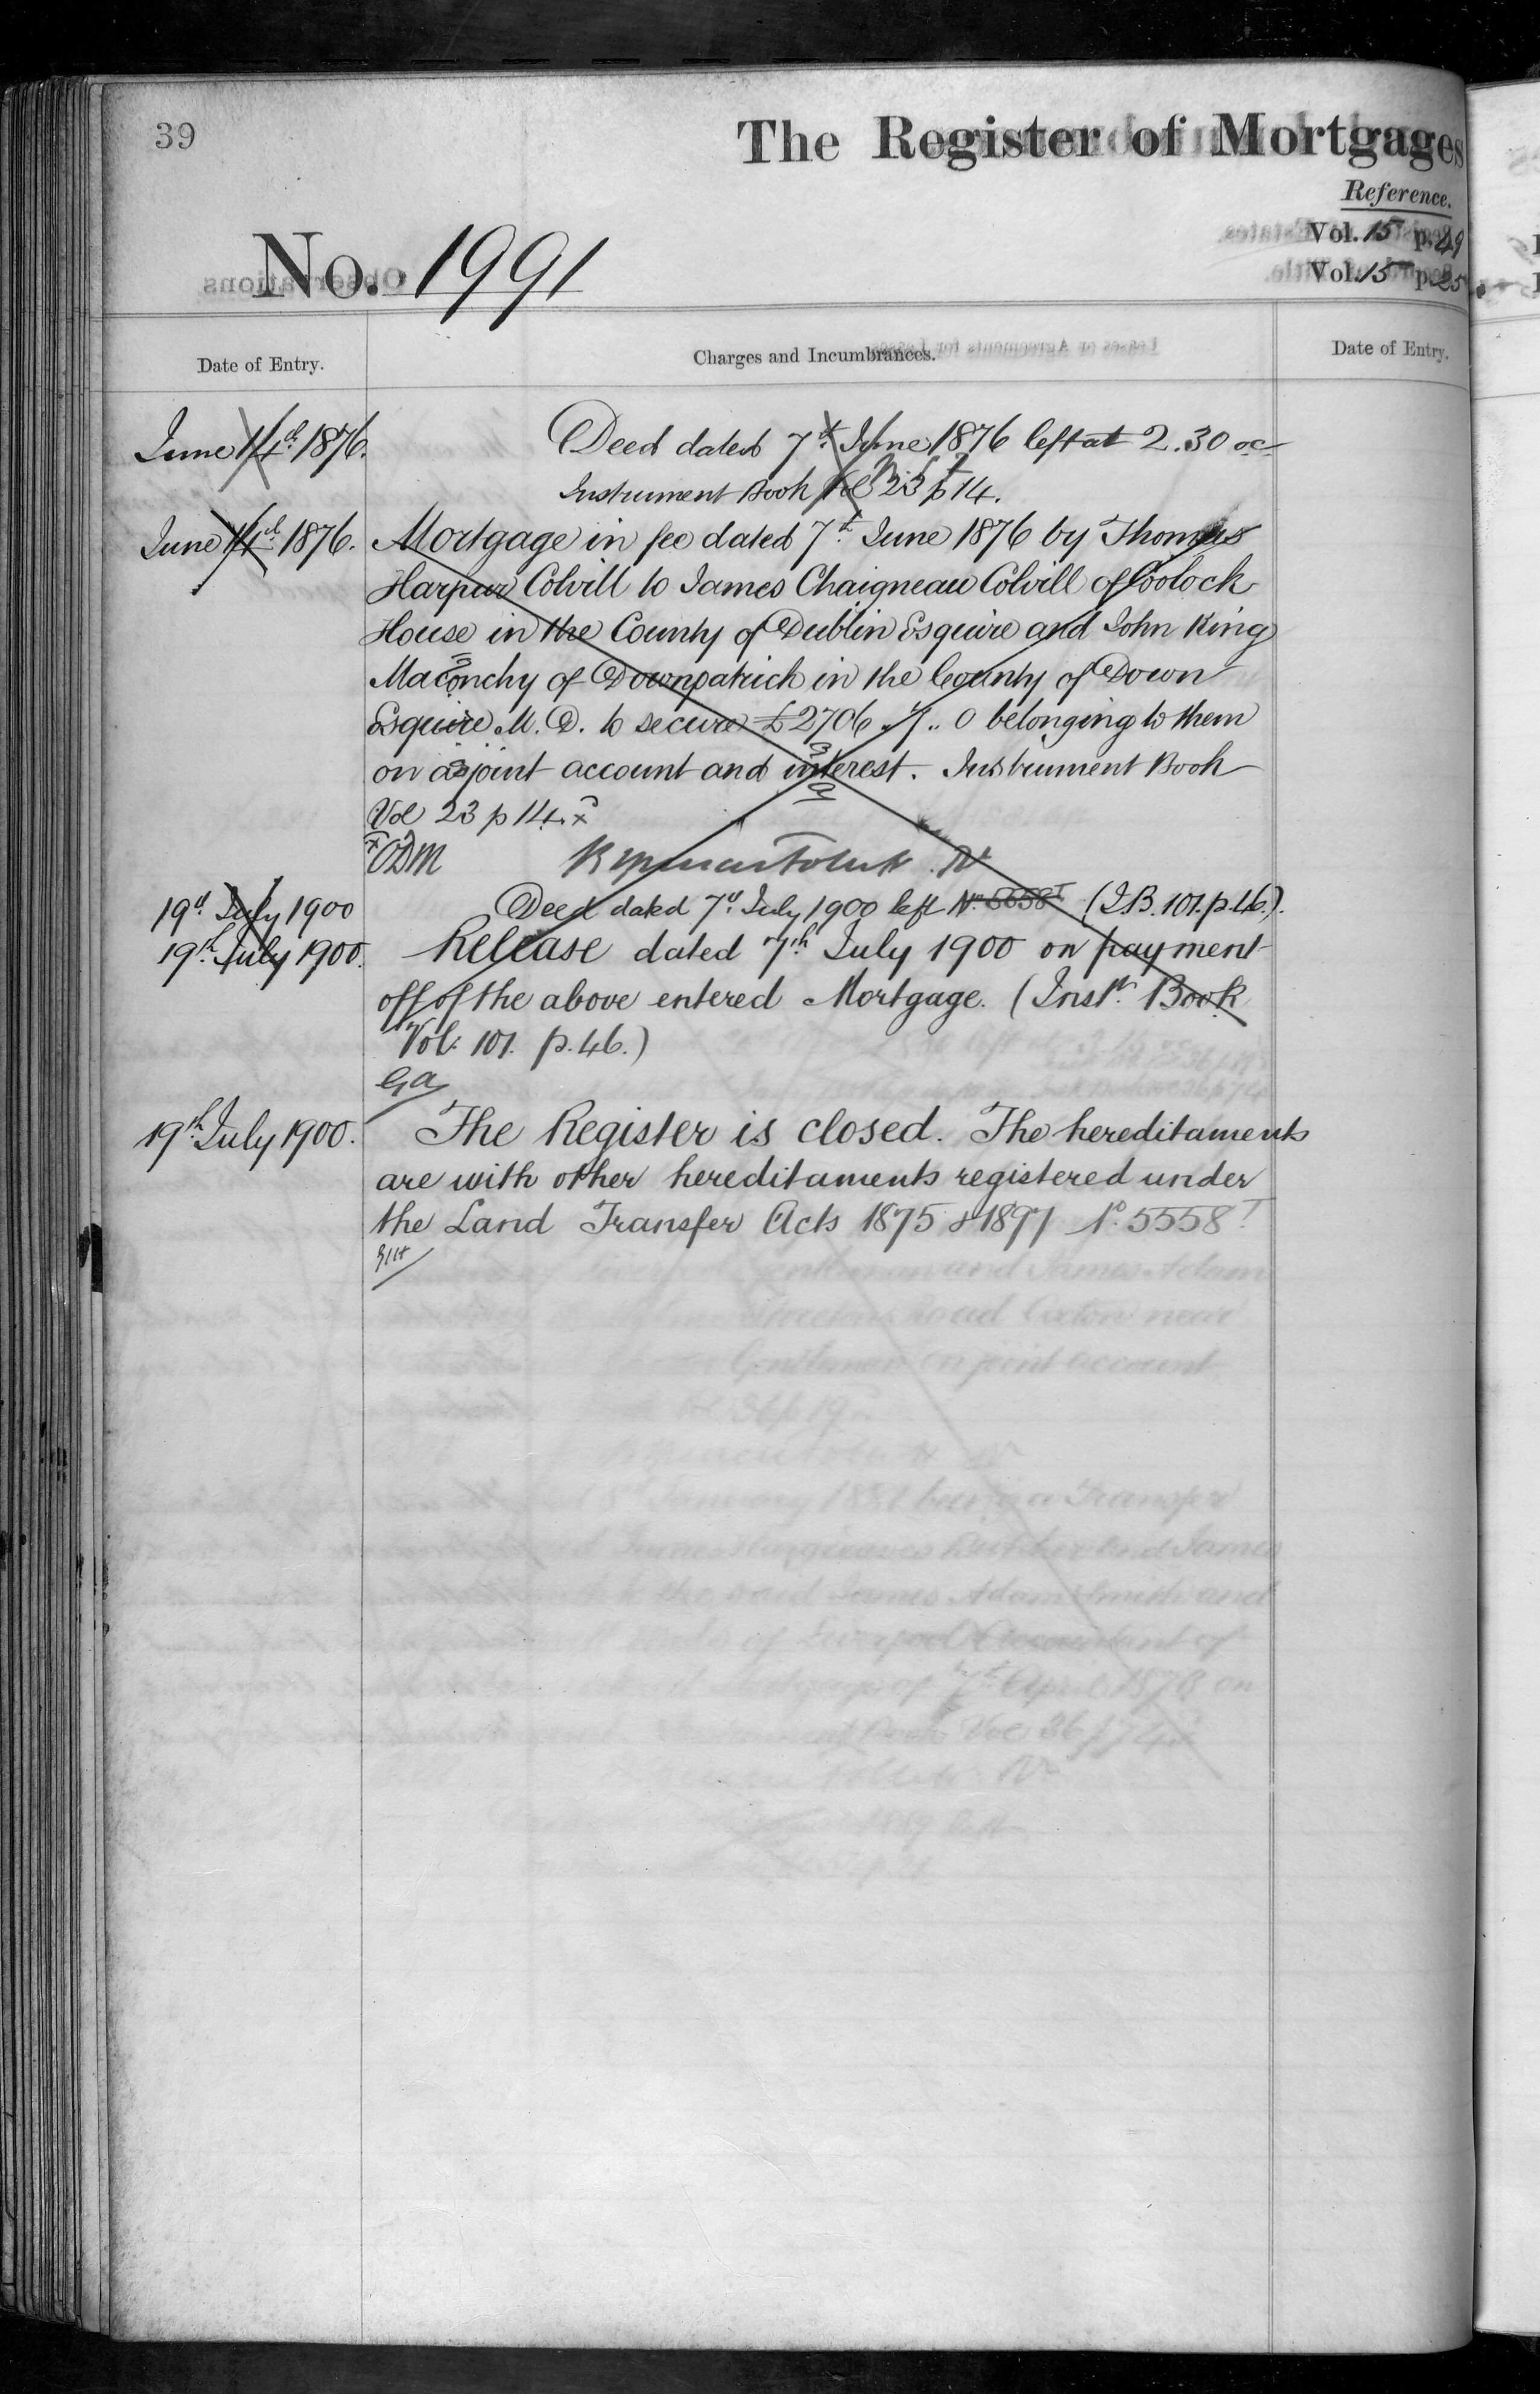 39
The Register of Mortgages
Reference.
Vol. 15 p. 49
Vol. 15 p. 25
No. 1991
Date of Entry.
Charges and Incumbrances.
Date of Entry.
June 14th 1876. Deed dated 7th June 1876 left at 2.30 oc
Instrument Book Vol 23 p 14.
June 14th 1876. Mortgage in fee dated 7th June 1876 by Thomas
Harpur Colvill to James Chaigneau Colvill of Coolock
House in the County of Dublin Esquire and John King
Maconchy of Downpatrick in the County of Down
Esquire M. D. to secure £2706 .. 7 .. 0 belonging to them
on a joint account and interest. Instrument Book
Vol 23 p 14. x
x ODM
19th July 1900 Deed dated 7th July 1900 left No 5558T (I.B. 101. p. 46.).
19th July 1900. Release dated 7th July 1900 on payment
off of the above entered Mortgage. (Inst. Book
Vol: 101. p. 46.)
Ga
19th July 1900. The Register is closed. The hereditaments
are with other hereditaments registered under
the Land Transfer Acts 1875 & 1897 No. 5558T